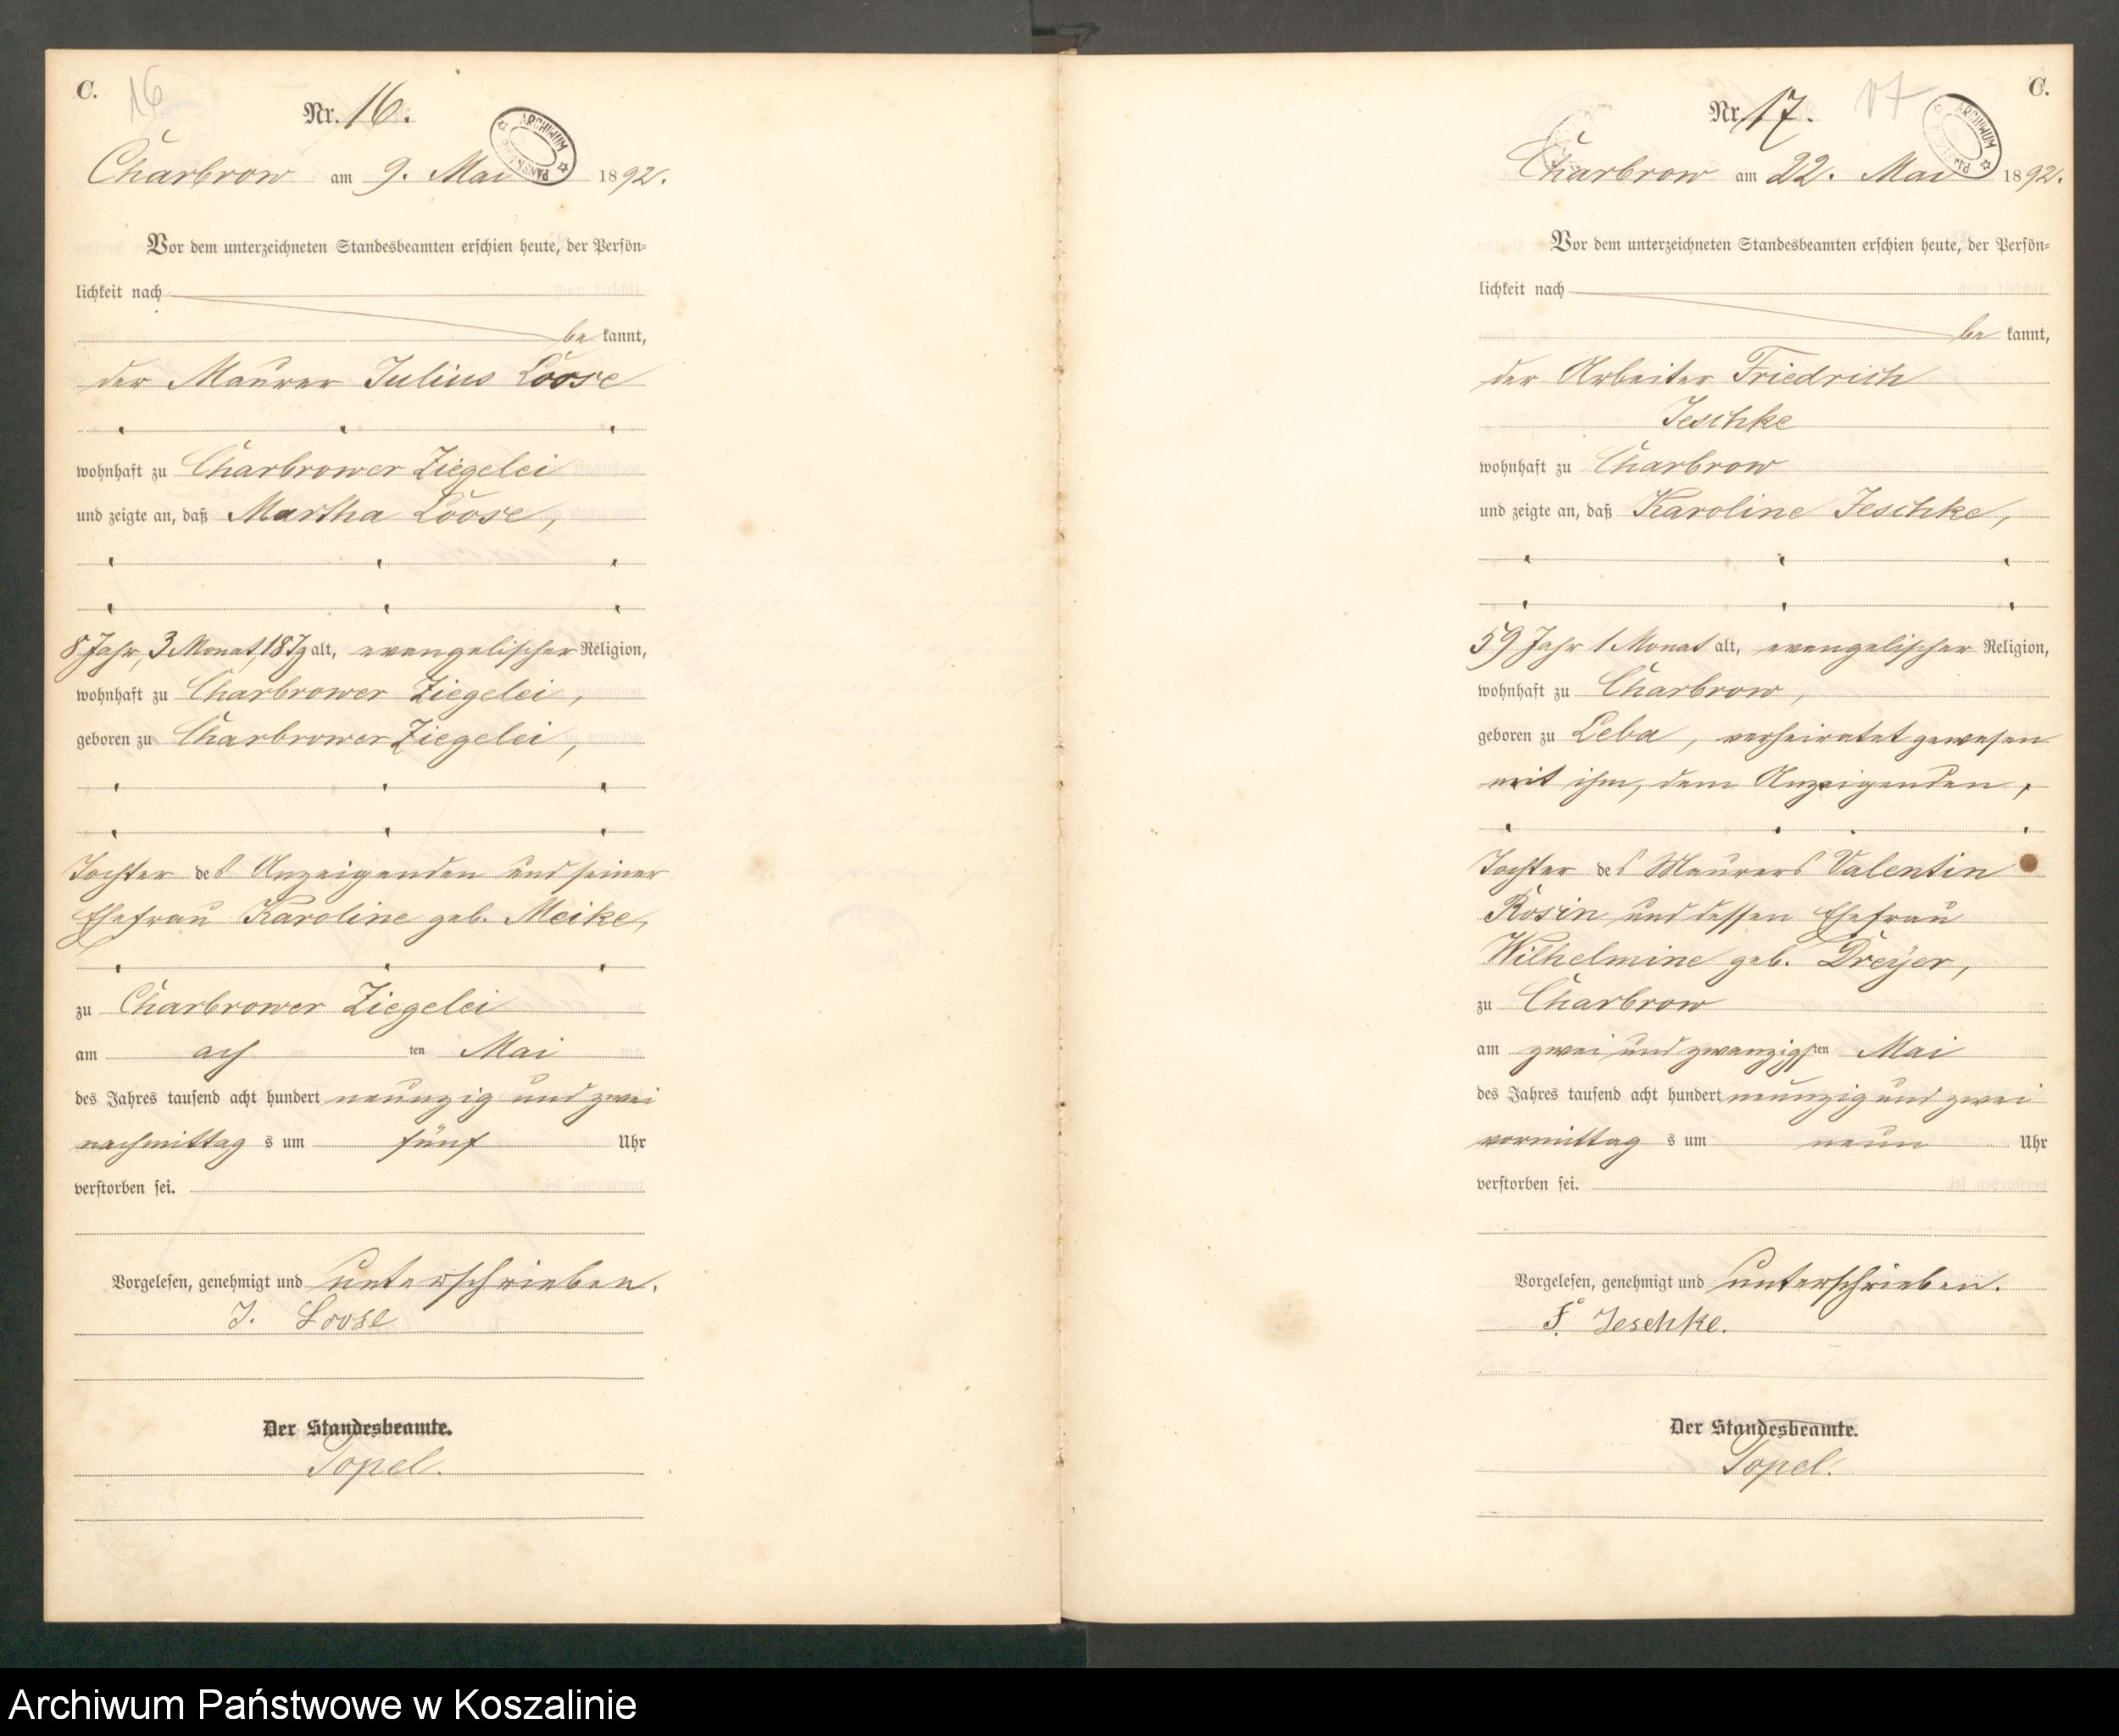 C.
16
Nr. 16.
ARCHIWUM
Charbrow am 9. Mai 1892.
Vor dem unterzeichneten Standesbeamten erschien heute, der Persön-
lichkeit nach
be kannt,
der Maurer Julius Loose
wohnhaft zu Charbrower Ziegelei
und zeigte an, daß Martha Loose,
8 Jahr, 3 Monat, 18 Tg alt, evangelischer Religion,
wohnhaft zu Charbrower Ziegelei,
geboren zu Charbrower Ziegelei,
Tochter des Anzeigenden und seiner
Ehefrau Karoline geb. Meike,
zu Charbrower Ziegelei
am ach ten Mai
des Jahres tausend acht hundert neunzig und zwei
nachmittag s um fünf Uhr
verstorben sei.
Vorgelesen, genehmigt und unterschrieben.
J. Loose
Der Standesbeamte.
Topel.
C.
17
Nr. 17.
ARCHIWUM
Charbrow am 22. Mai 1892.
Vor dem unterzeichneten Standesbeamten erschien heute, der Persön-
lichkeit nach
be kannt,
der Arbeiter Friedrich
Jeschke
wohnhaft zu Charbrow
und zeigte an, daß Karoline Jeschke,
59 Jahr 1 Monat alt, evangelischer Religion,
wohnhaft zu Charbrow,
geboren zu Leba, verheiratet gewesen
mit ihm, dem Anzeigenden,
Tochter des Maurers Valentin
Rosin und dessen Ehefrau
Wilhelmine geb. Dreyer,
zu Charbrow
am zwei und zwanzigsten Mai
des Jahres tausend acht hundert neunzig und zwei
vormittag s um neun Uhr
verstorben sei.
Vorgelesen, genehmigt und unterschrieben.
F. Jeschke.
Der Standesbeamte.
Topel.
Archiwum Państwowe w Koszalinie